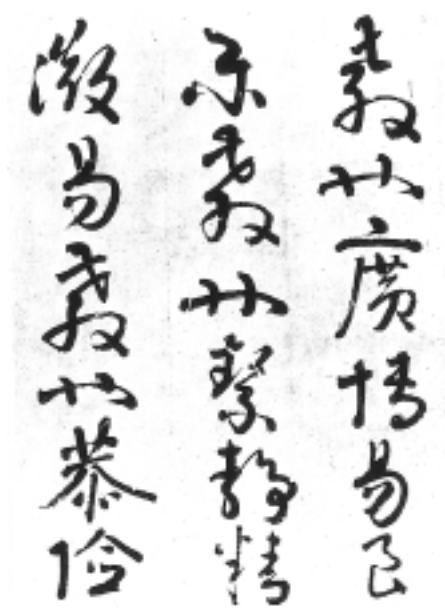 教也廣博易良
樂教也絜靜精
微易教也恭儉